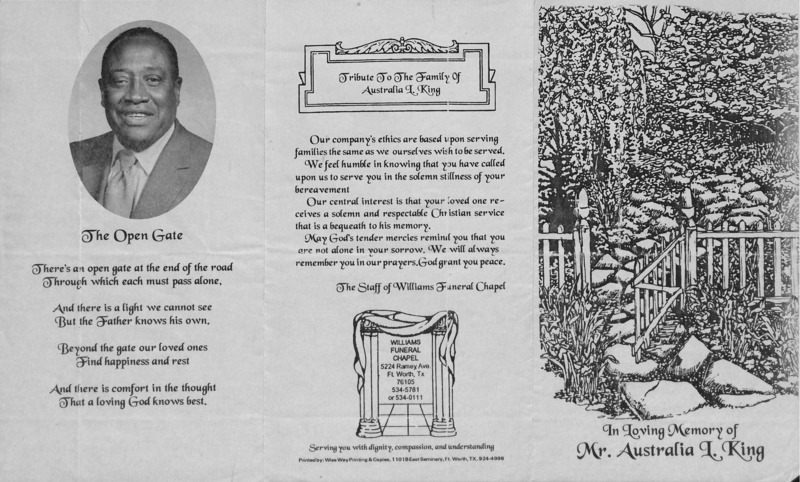 The Open Gate
There's an open gate at the end of the road
Through which each must pass alone,
And there is a light we cannot see
But the Father knows his own.
Beyond the gate our loved ones
Find happiness and rest
And there is comfort in the thought
That a loving God knows best.
Tribute To The Family Of
Australia L. King
Our company's ethics are based upon serving
families the same as we ourselves wish to be served.
We feel humble in knowing that you have called
upon us to serve you in the solemn stillness of your
bereavement
Our central interest is that your loved one re-
ceives a solemn and respectable Christian service
that is a bequeath to his memory.
May God's tender mercies remind you that you
are not alone in your sorrow. We will always
remember you in our prayers.God grant you peace.
The Staff of Williams Funeral Chapel
WILLIAMS
FUNERAL
CHAPEL
5224 Ramey Ave.
Ft. Worth, Tx
76105
534-5781
or 534-0111
Serving you with dignity, compassion, and understanding
Printed by: Wise Way Printing & Copies, 1101B East Seminary, Ft. Worth, TX. 924-4998
In Loving Memory of
Mr. Australia L. King